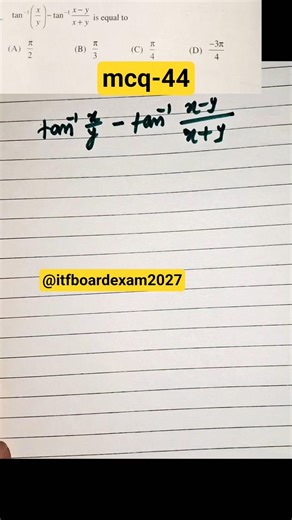 tan⁻¹(x/y) − tan⁻¹ x−y/x+y is equal to
(A) π/2 (B) π/3 (C) π/4 (D) −3π/4
mcq-44
tan⁻¹ x/y − tan⁻¹ x−y/x+y
@itfboardexam2027